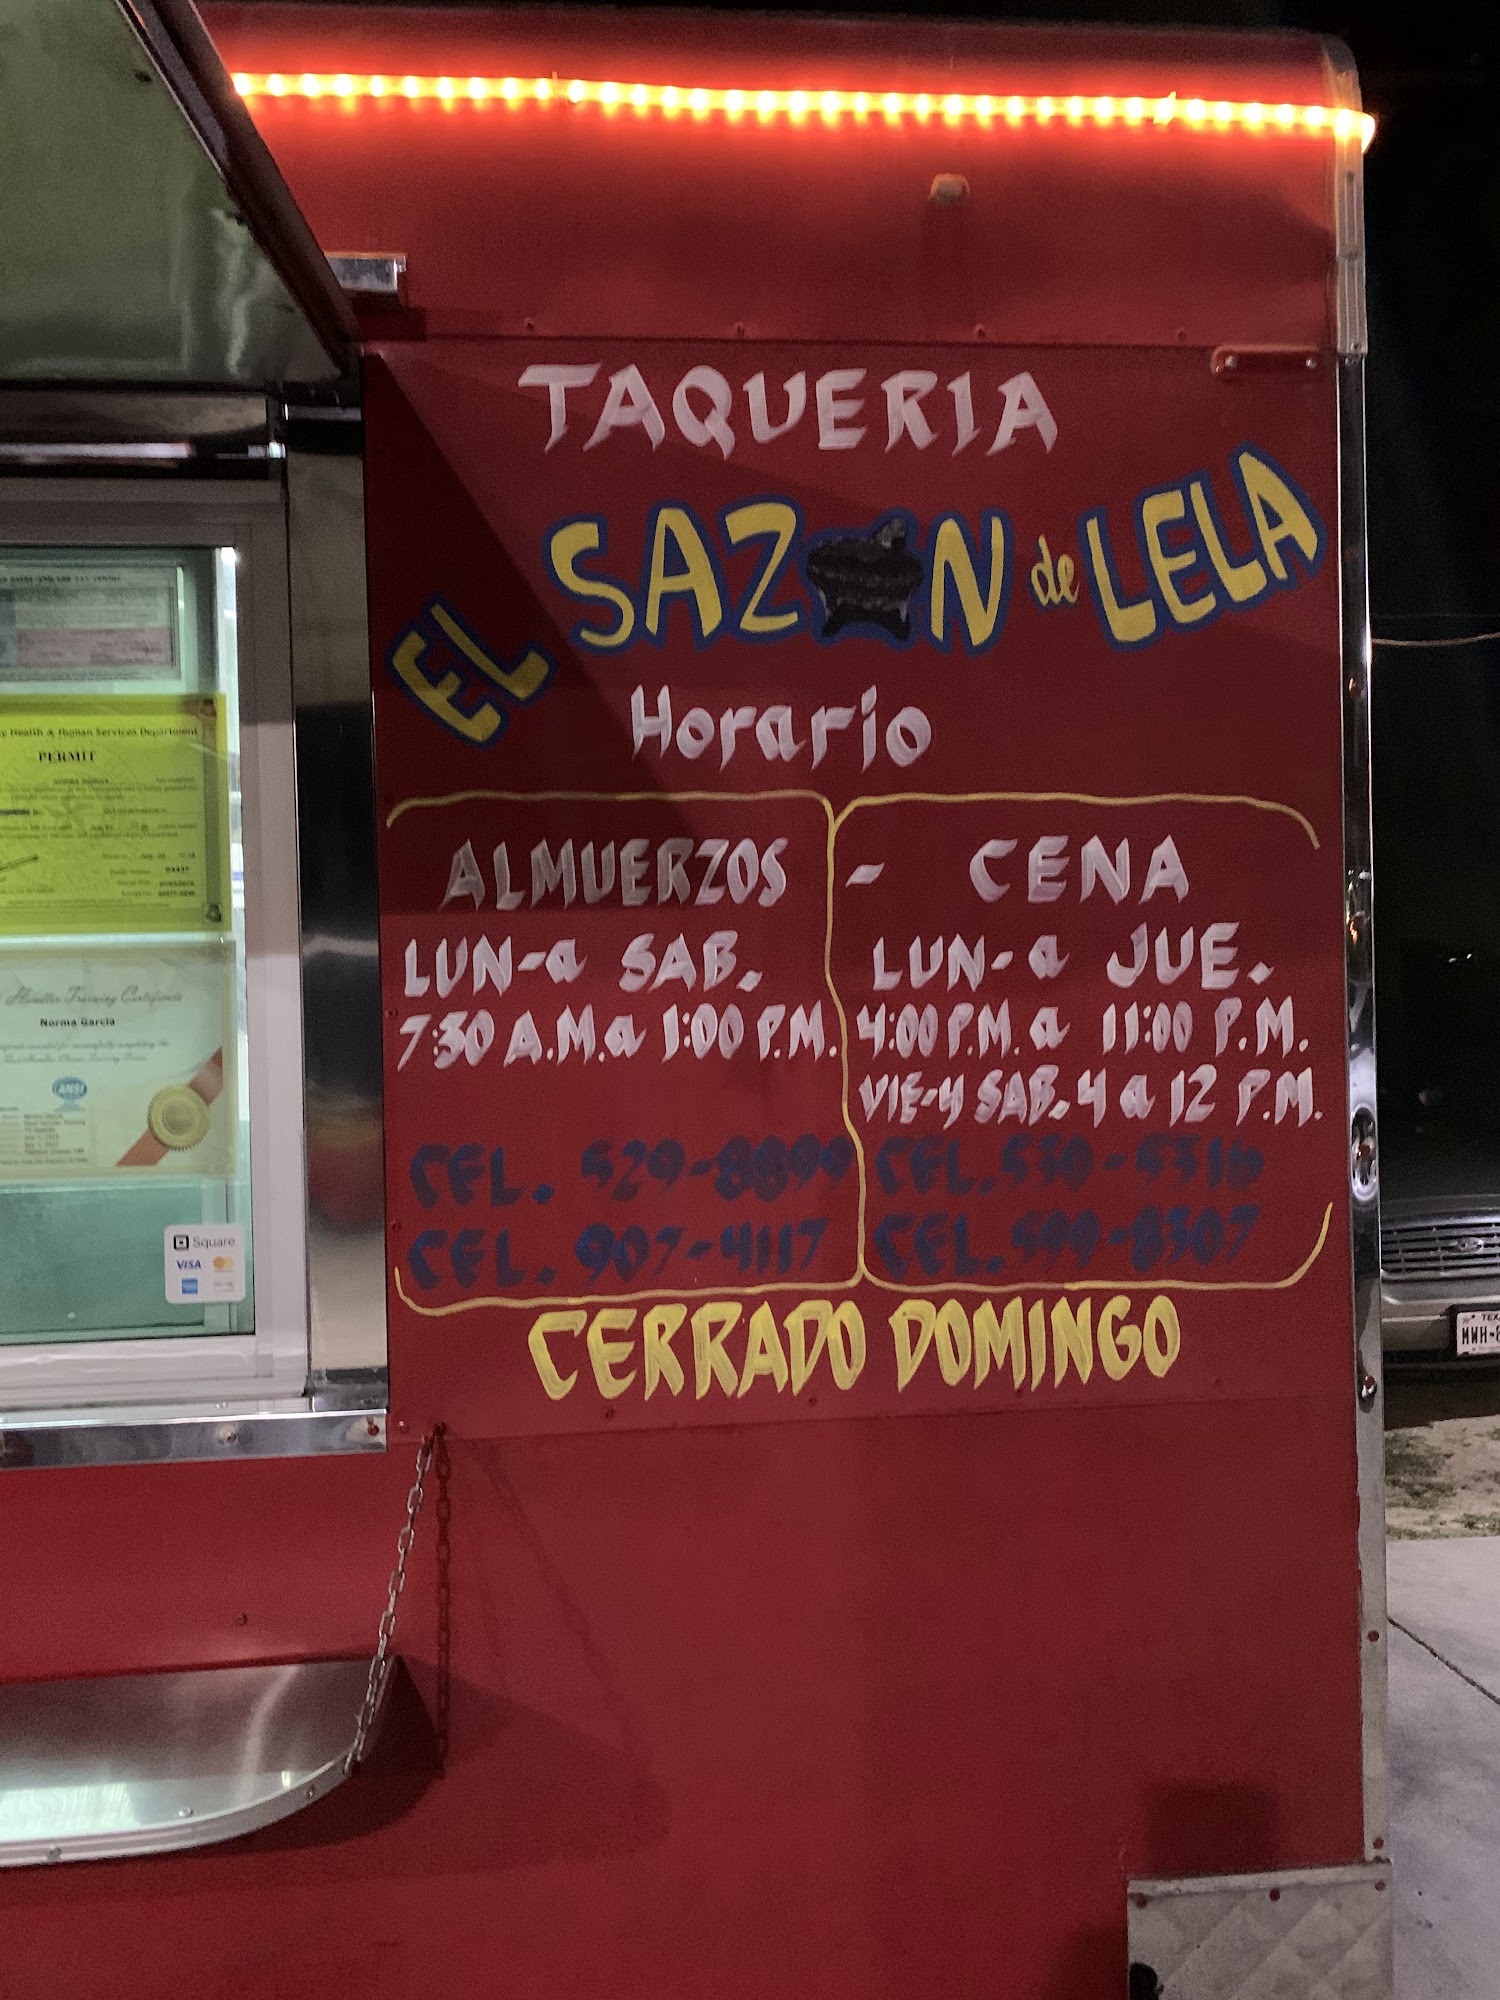 TAQUERIA
EL SAZON de LELA
Horario
ALMUERZOS - CENA
LUN-a SAB.
7:30 A.M.a 1:00 P.M.
LUN-a JUE.
4:00 P.M. a 11:00 P.M.
VIE-Y SAB. 4 a 12 P.M.
CEL. 529-8899
CEL. 907-4117
CEL. 530-5316
CEL. 599-8307
CERRADO DOMINGO
Health & Human Services Department
PERMIT
Handler Training Certificate
Norma Garcia
ANSI
Square
VISA
TEXAS
MWH-8